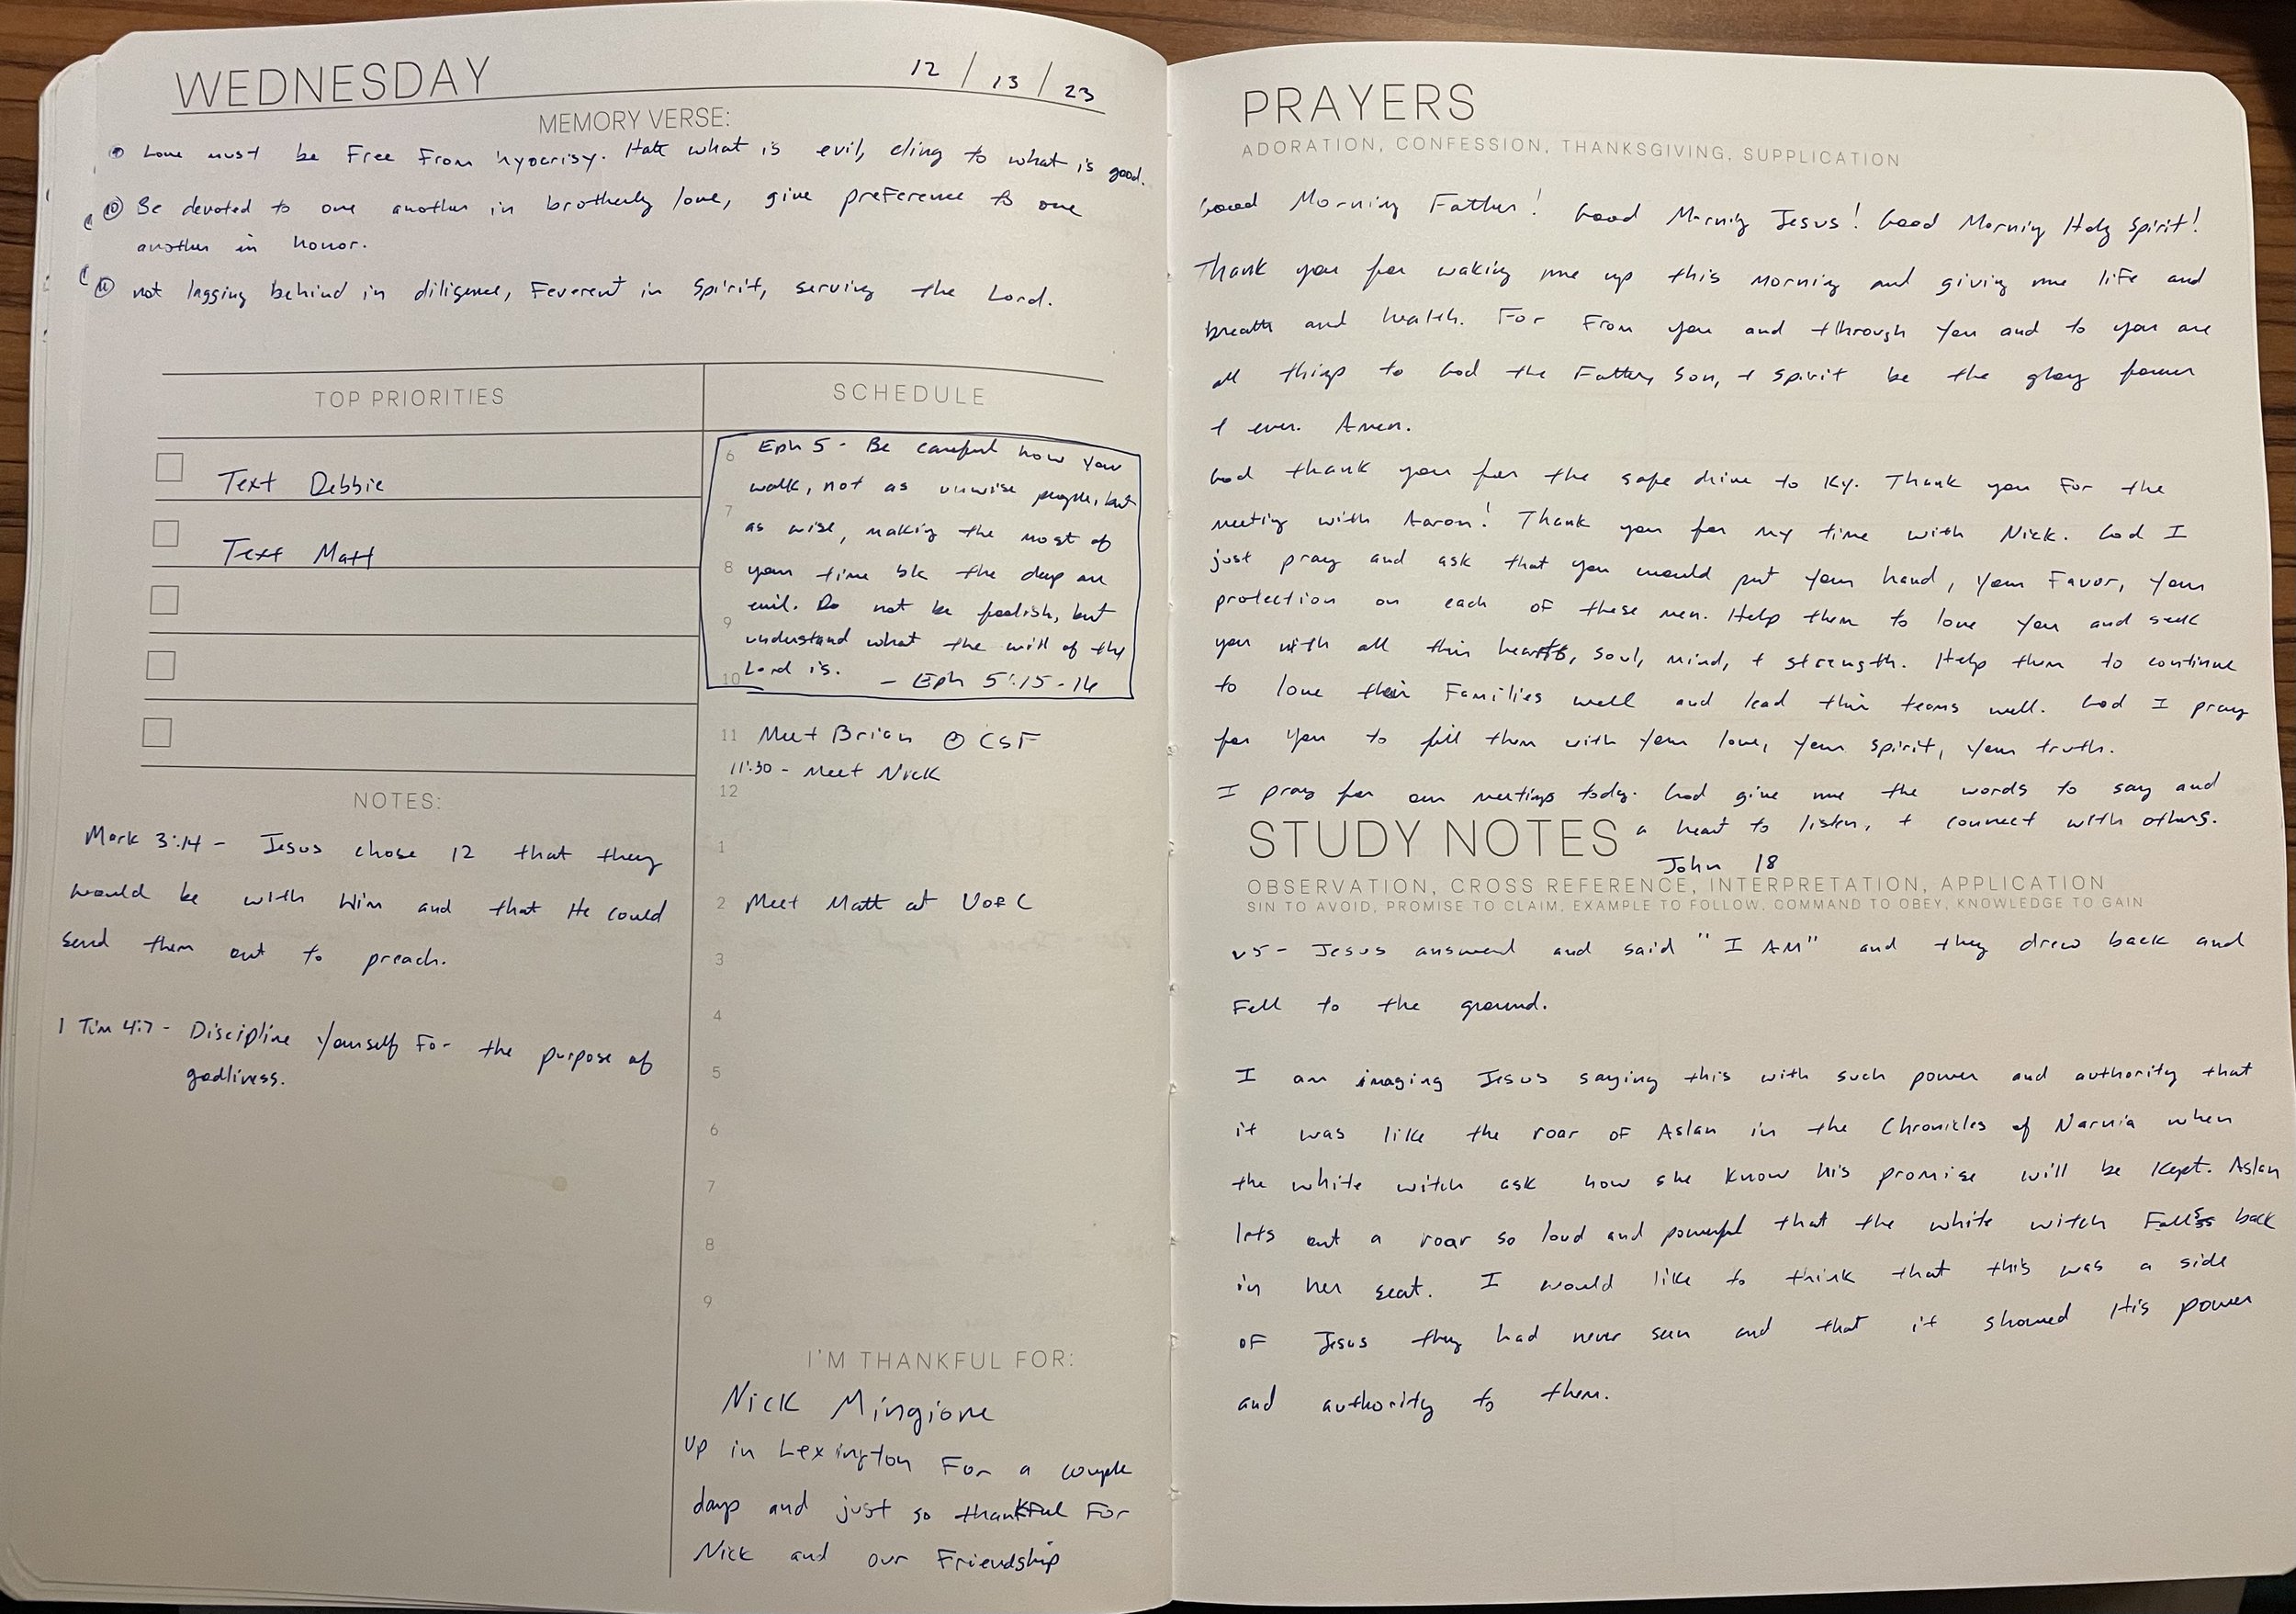 WEDNESDAY 12 / 13 / 23
MEMORY VERSE:
⑨ Love must be Free From hypocrisy. Hate what is evil, cling to what is good.
⑩ Be devoted to one another in brotherly love, give preference to one
another in honor.
⑪ not lagging behind in diligence, Feverent in Spirit, serving the Lord.
TOP PRIORITIES
Text Debbie
Text Matt
NOTES:
Mark 3:14 - Jesus chose 12 that they
would be with Him and that He could
send them out to preach.
1 Tim 4:7 - Discipline yourself For the purpose of
godliness.
SCHEDULE
6 Eph 5 - Be careful how you
walk, not as unwise people, but
7
as wise, making the most of
8 your time b/c the days are
evil. Do not be foolish, but
9
understand what the will of the
10 Lord is. - Eph 5:15-16
11 Meet Brian @ CSF
11:30 - Meet Nick
12
1
2 Meet Matt at UofL
3
4
5
6
7
8
9
I'M THANKFUL FOR:
Nick Mingione
Up in Lexington For a couple
days and just so thankful For
Nick and our Friendship
PRAYERS
ADORATION, CONFESSION, THANKSGIVING, SUPPLICATION
Good Morning Father! Good Morning Jesus! Good Morning Holy Spirit!
Thank you for waking me up this Morning and giving me life and
breath and health. For From you and through You and to you are
all things to God the Father, Son, + Spirit be the glory forever
+ ever. Amen.
God thank you for the safe drive to Ky. Thank you For the
meeting with Aaron! Thank you for my time with Nick. God I
just pray and ask that you would put your hand, your Favor, your
protection on each of these men. Help them to love you and seek
you with all their hearts, soul, mind, + strength. Help them to continue
to love their Families well and lead their teams well. God I pray
for you to fill them with your love, your spirit, your truth.
I pray for our meetings today. God give me the words to say and
a heart to listen, + connect with others.
STUDY NOTES
John 18
OBSERVATION, CROSS REFERENCE, INTERPRETATION, APPLICATION
SIN TO AVOID, PROMISE TO CLAIM, EXAMPLE TO FOLLOW, COMMAND TO OBEY, KNOWLEDGE TO GAIN
v5 - Jesus answered and said "I AM" and they drew back and
Fell to the ground.
I am imaging Jesus saying this with such power and authority that
it was like the roar of Aslan in the Chronicles of Narnia when
the white witch ask how she know his promise will be Kept. Aslan
lets out a roar so loud and powerful that the white witch Falls back
in her seat. I would like to think that this was a side
of Jesus they had never seen and that it showed His power
and authority to them.